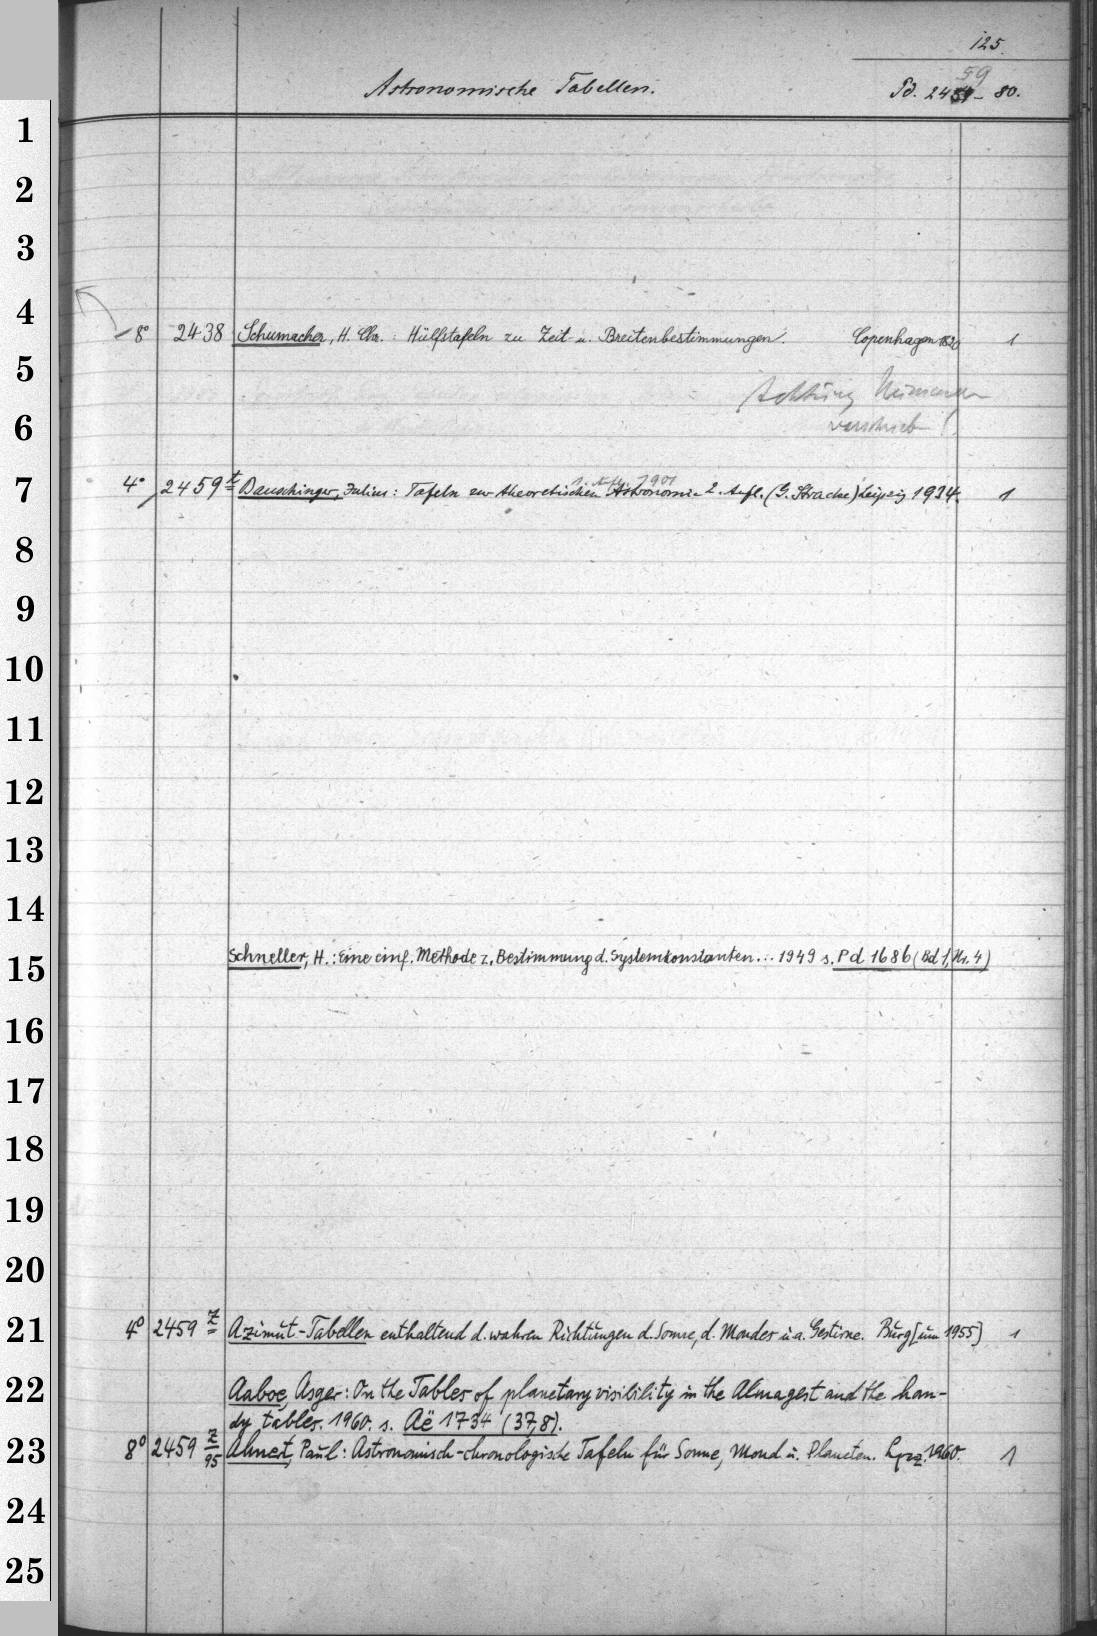 125.
59
Astronomische Tabellen. Pd. 2451-80.
1
2
3
4
8° 2438 Schumacher, H. Chr.: Hülfstafeln zu Zeit- u. Breitenbestimmungen. Copenhagen 1820 1
5
Achtung Nummer
6
verschrieb
1. Aufl. 1901
7
4° 2459 t Bauschinger, Julius: Tafeln zur theoretischen Astronomie 2. Aufl. (G. Stracke) Leipzig 1934. 1
8
9
10
11
12
13
14
15
Schneller, H.: Eine einf. Methode z. Bestimmung d. Systemkonstanten... 1949 s. Pd 1686 (Bd 1, Nr. 4)
16
17
18
19
20
21
4° 2459 z Azimut-Tabellen enthaltend d. wahren Richtungen d. Sonne, d. Mondes u. a. Gestirne. Burg [um 1955] 1
22
Aaboe, Asger: On the Tables of planetary visibility in the Almagest and the han-
dy tables. 1960. s. Aë 1734 (37,8).
23
8° 2459 z/95 Ahnert, Paul: Astronomisch-chronologische Tafeln für Sonne, Mond u. Planeten. Lpz. 1960. 1
24
25